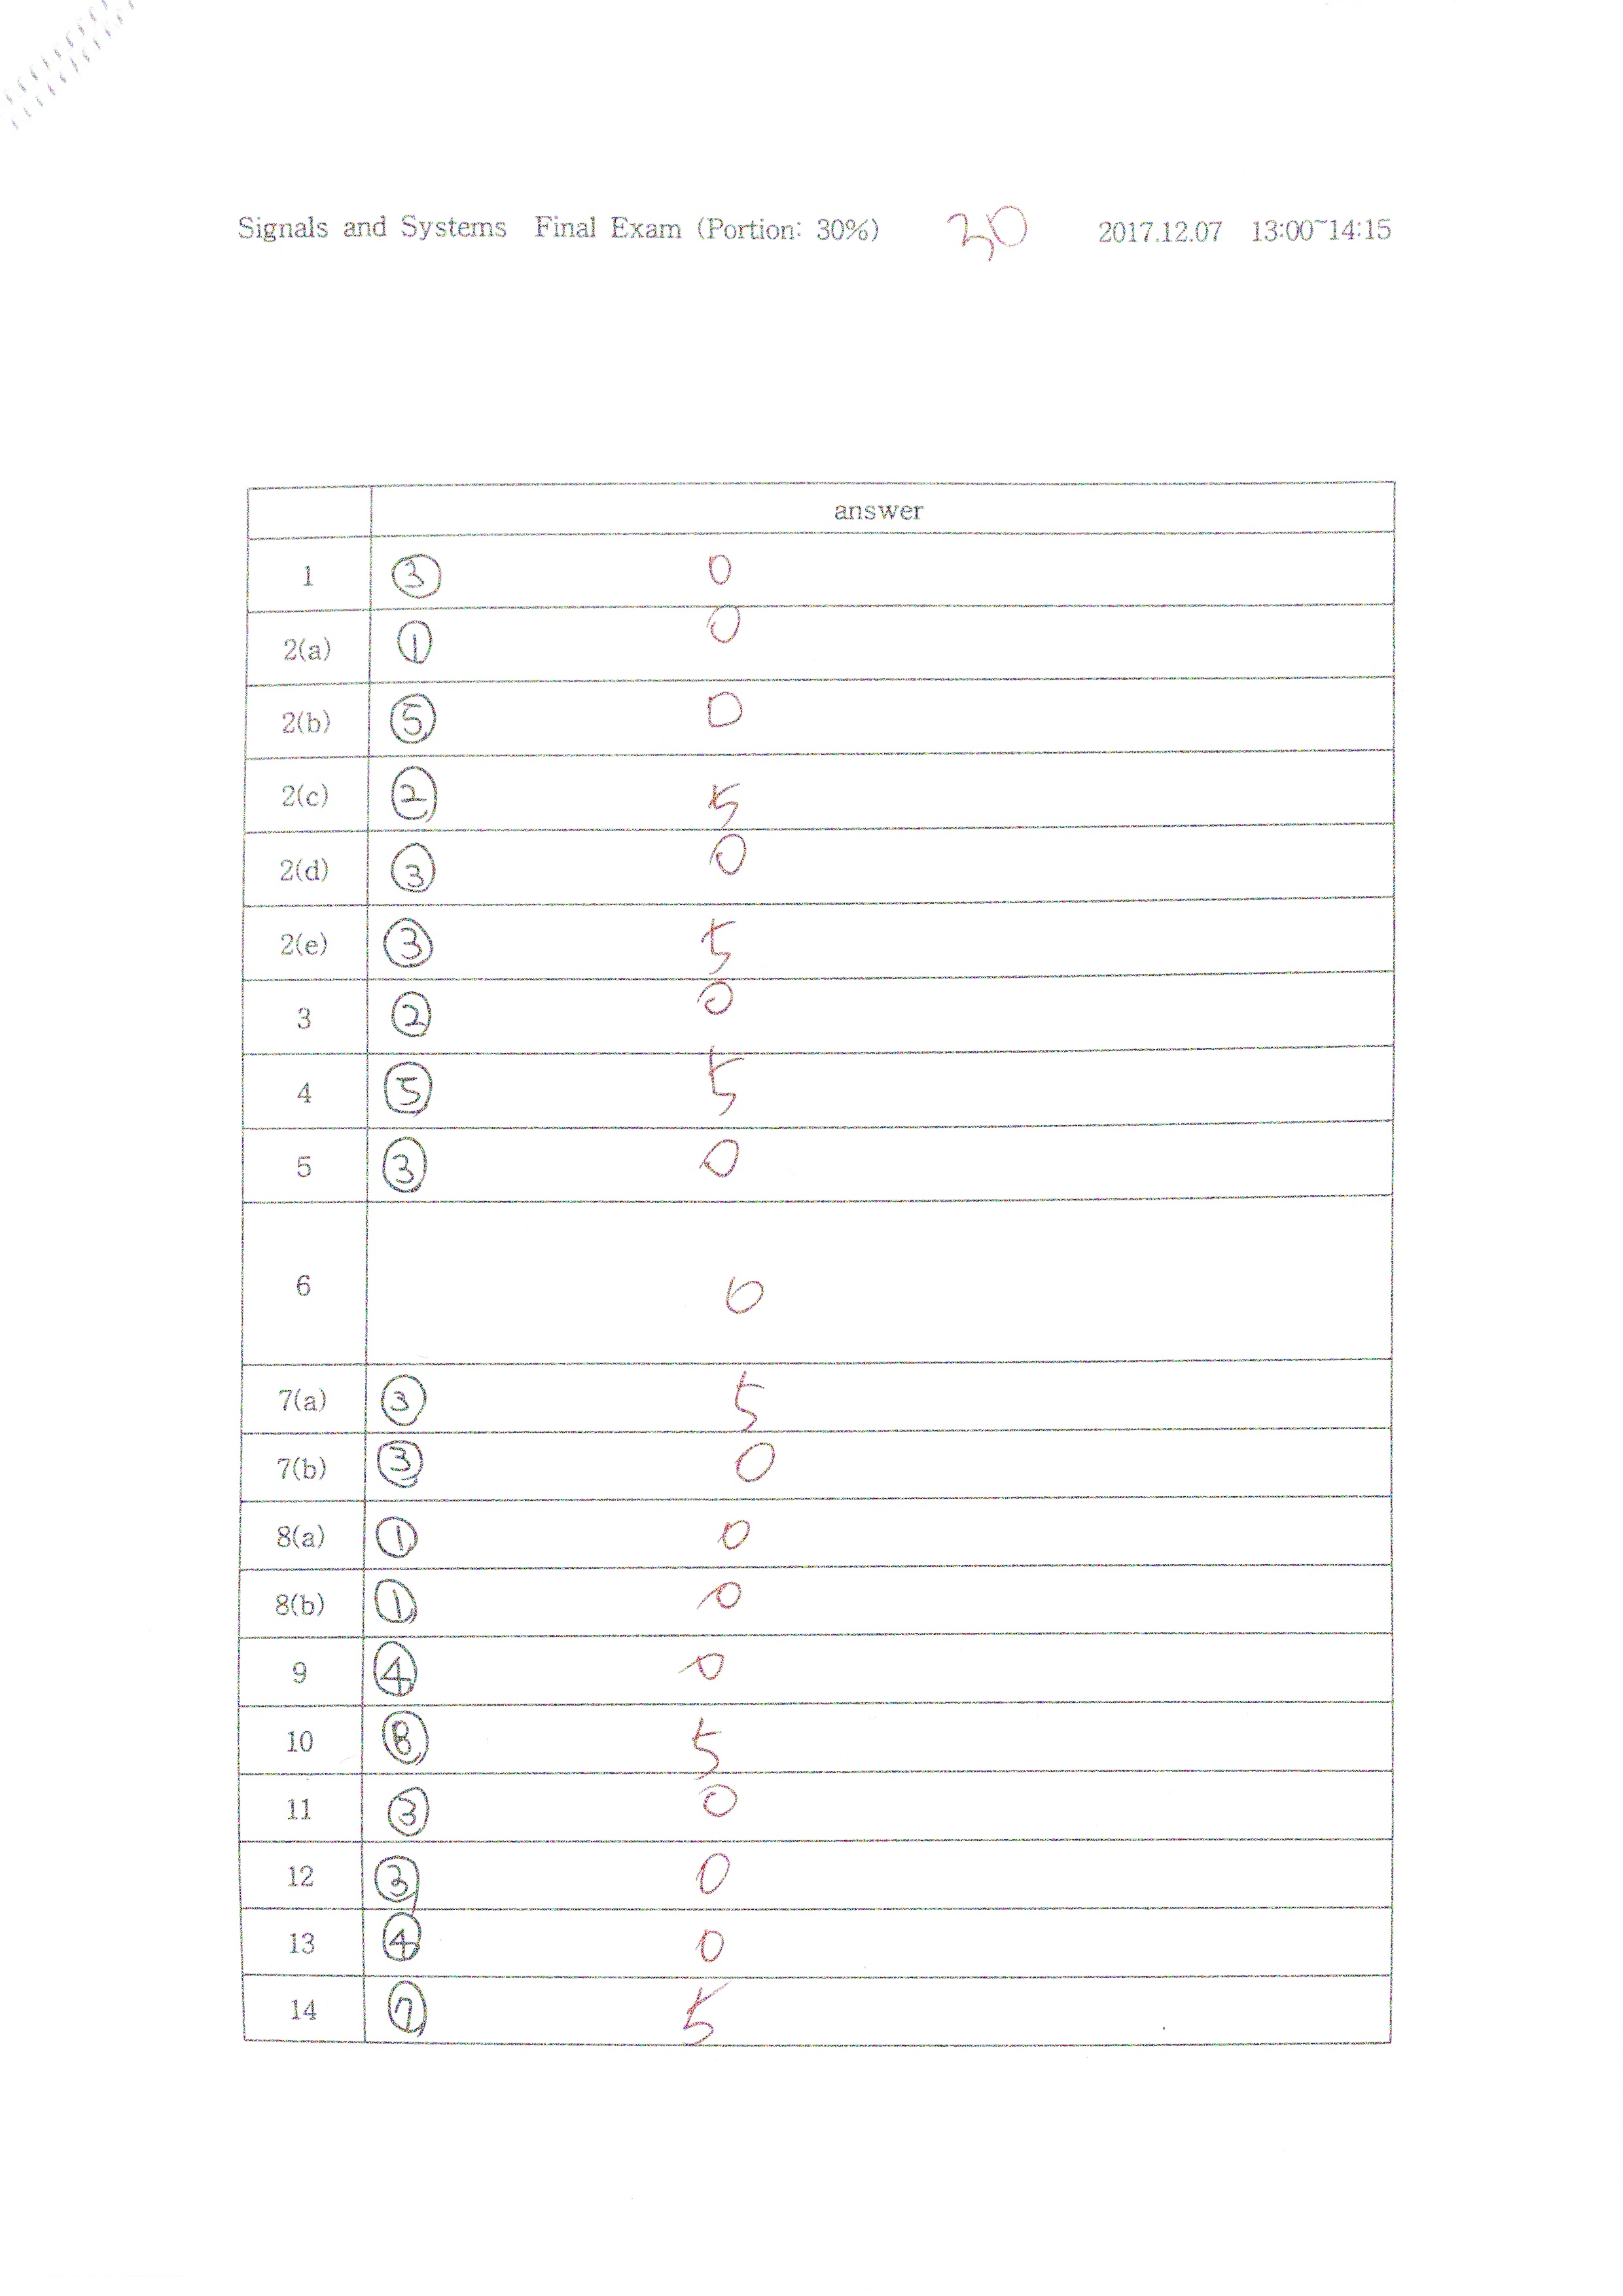 Signals and Systems Final Exam (Portion: 30%) 30 2017.12.07 13:00~14:15
answer
1 ③ 0
2(a) ① 0
2(b) ⑤ 0
2(c) ② 5
2(d) ③ 0
2(e) ③ 5
3 ② 0
4 ⑤ 5
5 ③ 0
6 0
7(a) ③ 5
7(b) ③ 0
8(a) ① 0
8(b) ① 0
9 ④ 0
10 ⑧ 5
11 ③ 0
12 ③ 0
13 ④ 0
14 ⑦ 5